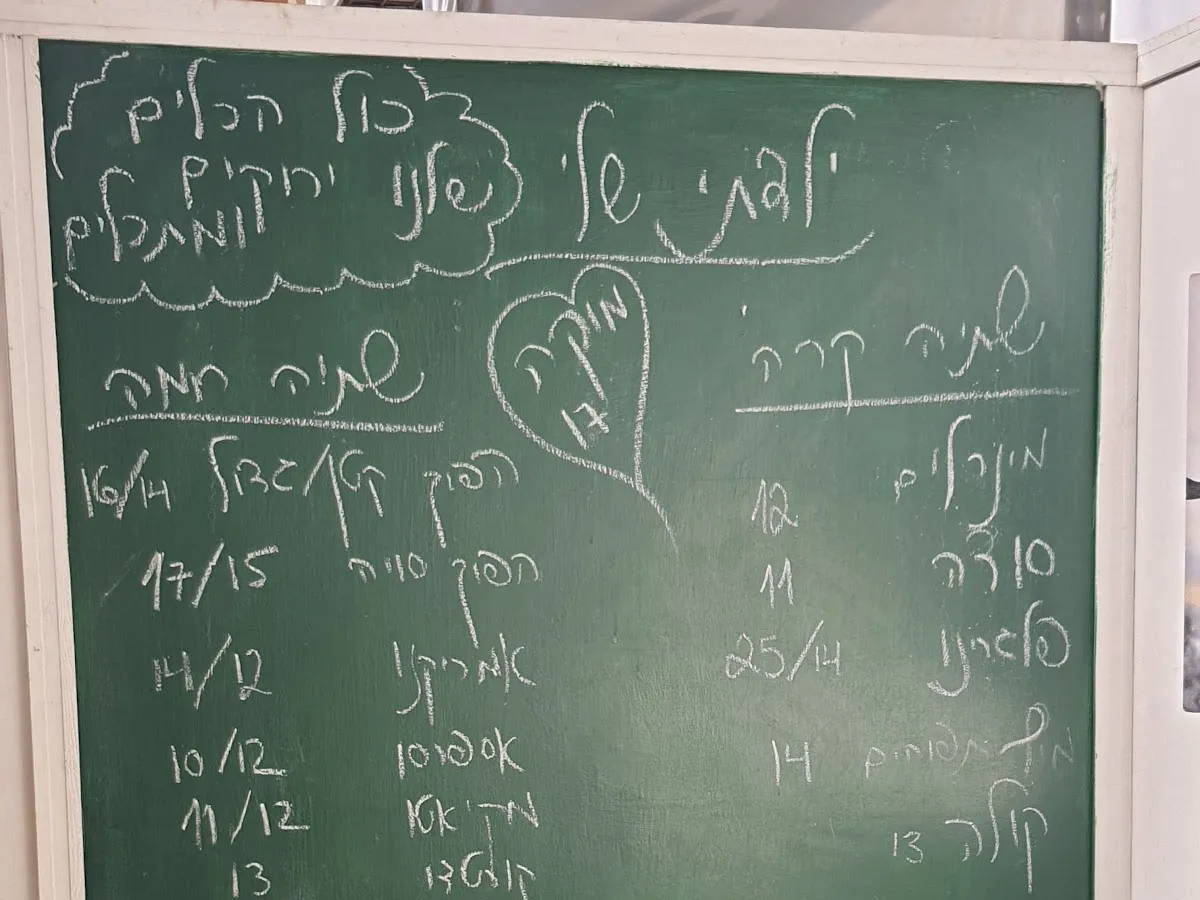 ילפתי שלי
כול הכלים
שלנו ירוקים
ומתכלים
מוקה
17
שתיה קרה
מינרלים 12
סודה 11
פלגרינו 25/14
מיץ תפוחים 14
קולה 13
שתיה חמה
הפוך קטן/גדול 16/14
הפוך סויה 17/15
אמריקנו 14/12
אספרסו 10/12
מקיאטו 11/12
קורטדו 13